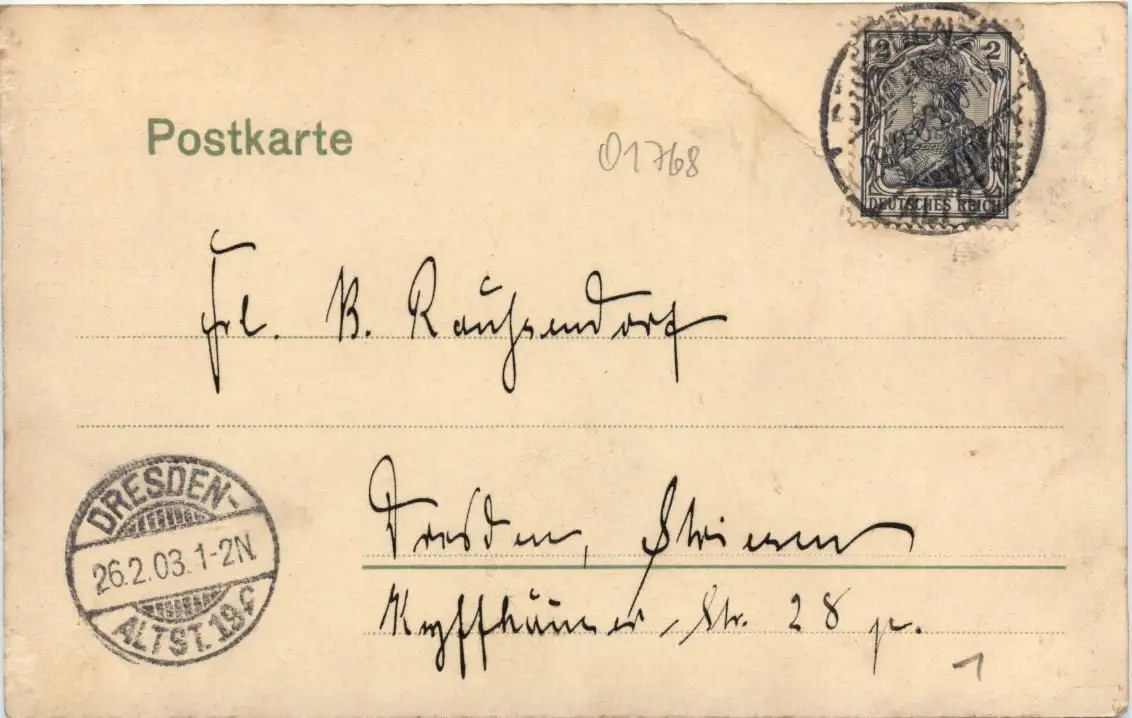 Postkarte
01768
2 2
DRESDEN
DEUTSCHES REICH
Frl. B. Rauhsendorf
DRESDEN-
26.2.03. 1-2N.
ALTST. 19 c
Dresden, Striesen
Kyffhäuser-Str. 28 p.
1